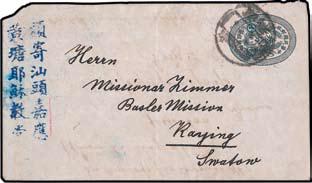 煩寄汕頭嘉應
黃塘耶穌教堂
Herrn
Missionar Zimmer
Basler Mission
Kaying
Swatow